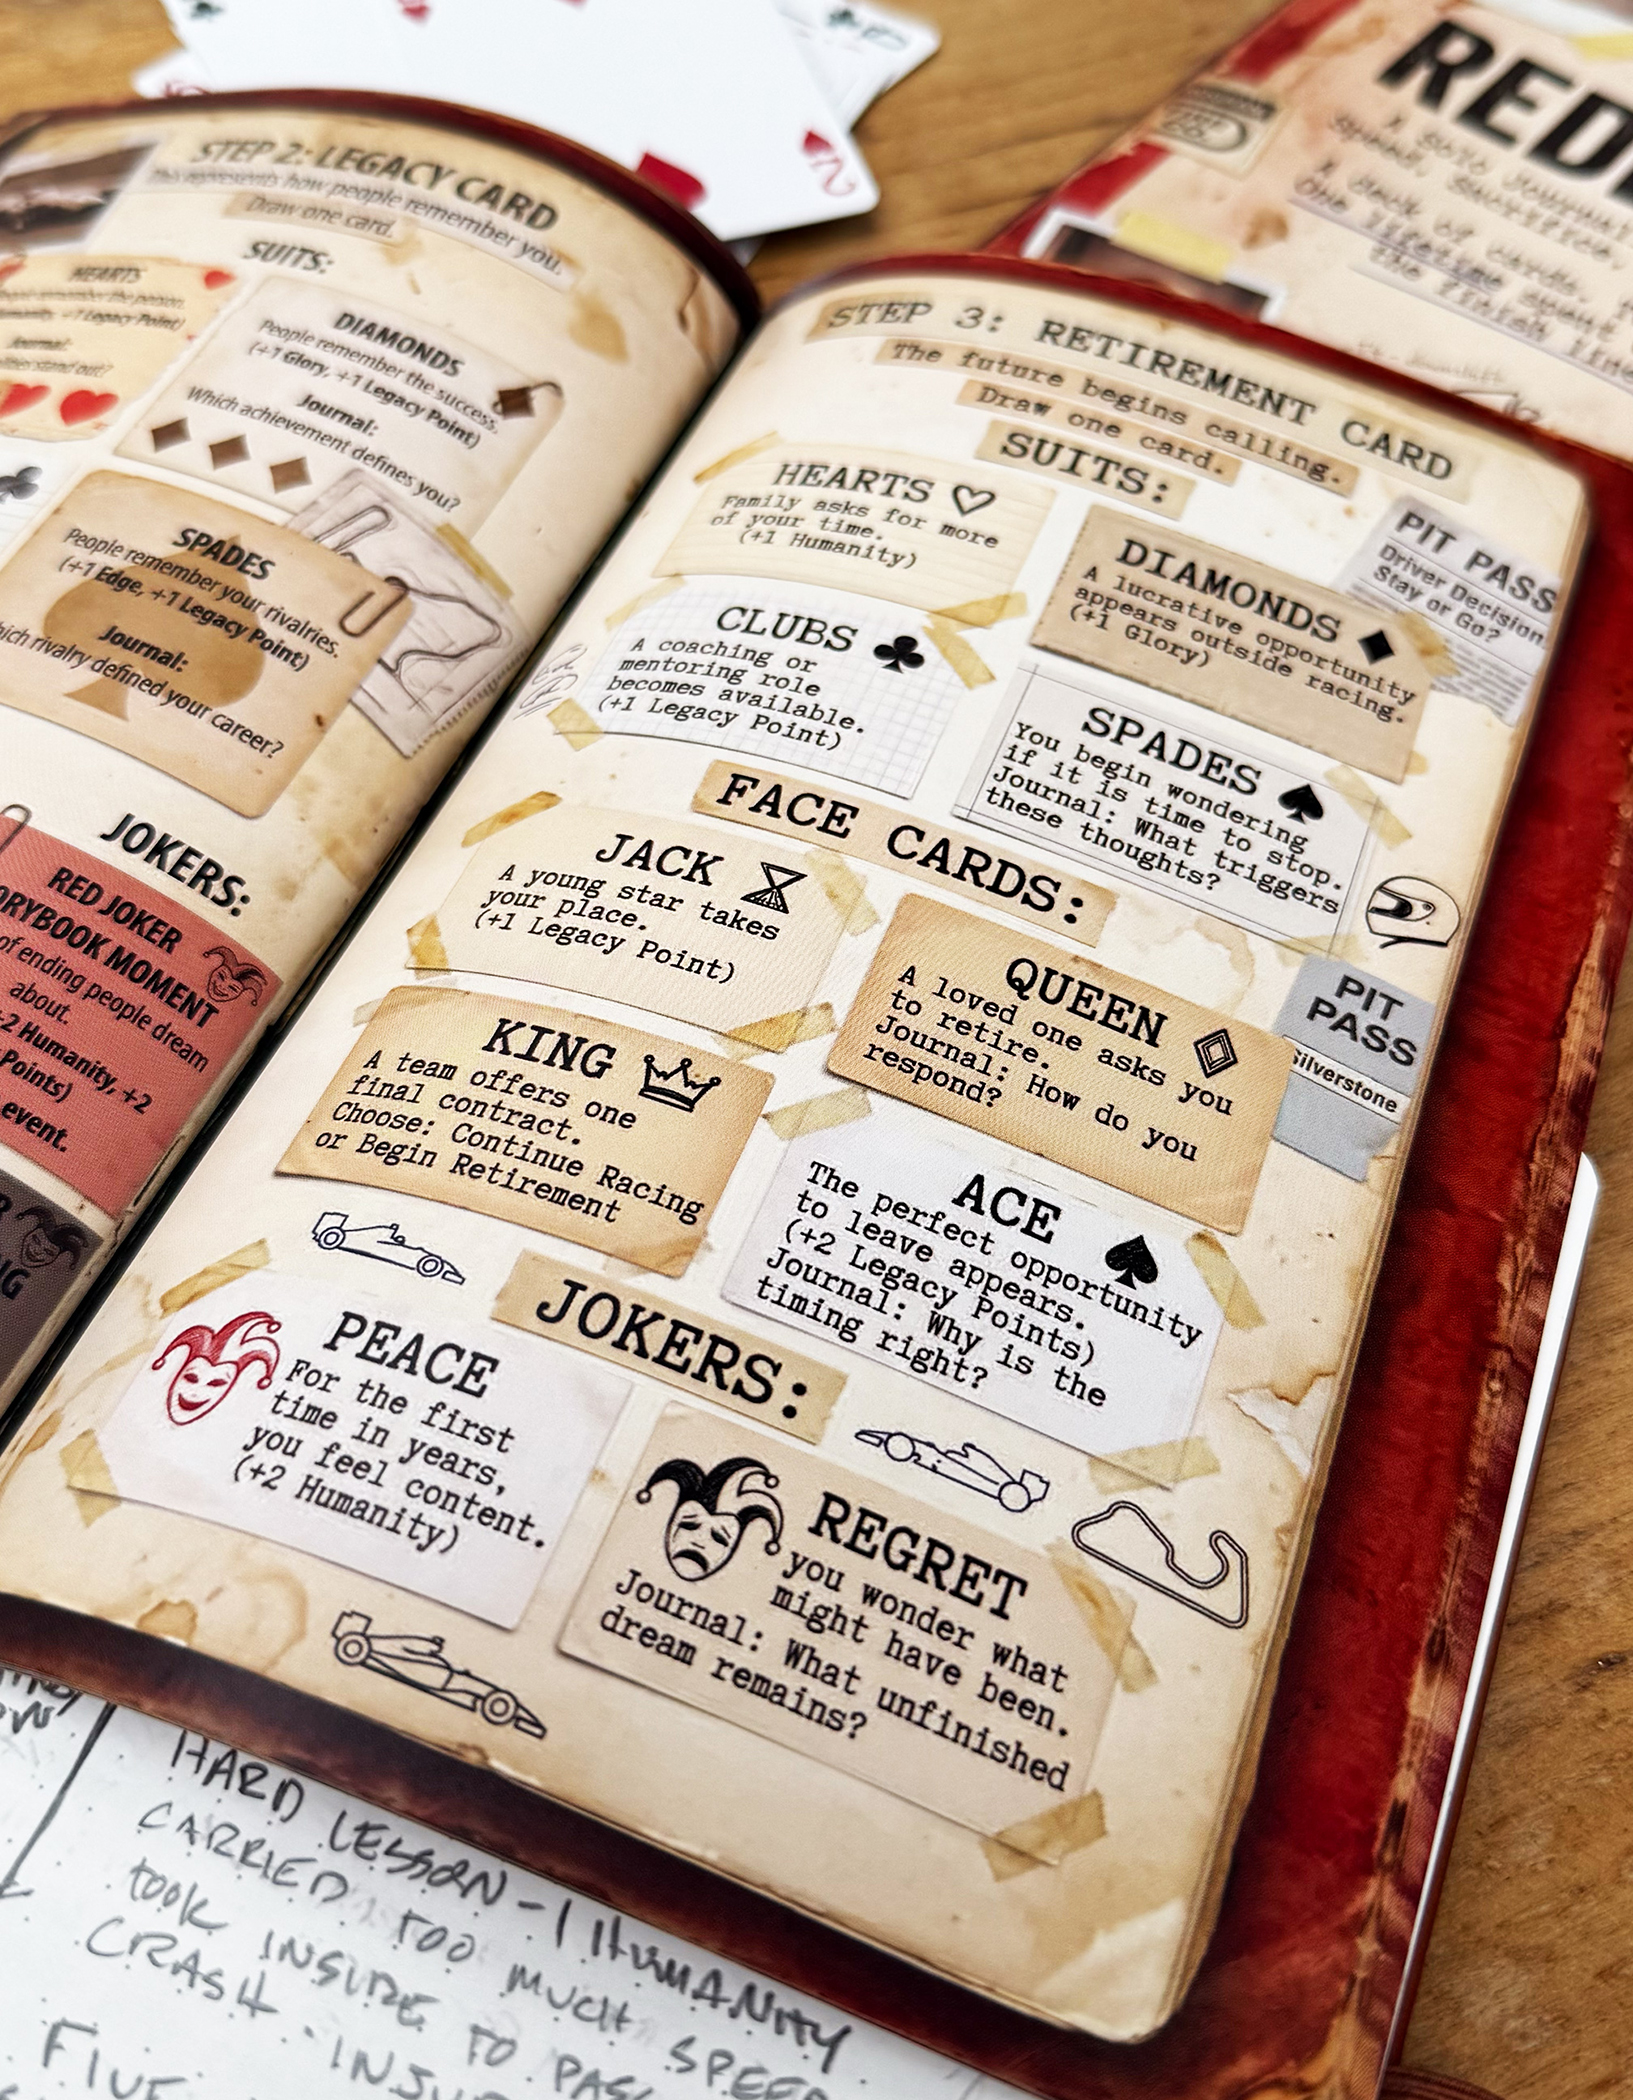 STEP 2: LEGACY CARD
This represents how people remember you.
Draw one card.
SUITS:
HEARTS
remember the person.
+1 Legacy Point)
Journal:
stand out?
DIAMONDS
People remember the success.
(+1 Glory, +1 Legacy Point)
Journal:
Which achievement defines you?
SPADES
People remember your rivalries.
(+1 Edge, +1 Legacy Point)
Journal:
rivalry defined your career?
JOKERS:
RED JOKER
MOMENT
of ending people dream
about.
+2 Humanity, +2
Points)
event.
STEP 3: RETIREMENT CARD
The future begins calling.
Draw one card.
SUITS:
HEARTS
Family asks for more
of your time.
(+1 Humanity)
DIAMONDS
A lucrative opportunity
appears outside racing.
(+1 Glory)
PIT PASS
Driver Decision
Stay or Go?
CLUBS
A coaching or
mentoring role
becomes available.
(+1 Legacy Point)
SPADES
You begin wondering
if it is time to stop.
Journal: What triggers
these thoughts?
FACE CARDS:
JACK
A young star takes
your place.
(+1 Legacy Point)
QUEEN
A loved one asks you
to retire.
Journal: How do you
respond?
PIT
PASS
Silverstone
KING
A team offers one
final contract.
Choose: Continue Racing
or Begin Retirement
ACE
The perfect opportunity
to leave appears.
(+2 Legacy Points)
Journal: Why is the
timing right?
JOKERS:
PEACE
For the first
time in years,
you feel content.
(+2 Humanity)
REGRET
you wonder what
might have been.
Journal: What unfinished
dream remains?
2
HARD LESSON - 1 HUMANITY
CARRIED TOO MUCH SPEED
TOOK INSIDE TO PASS
CRASH
FIVE